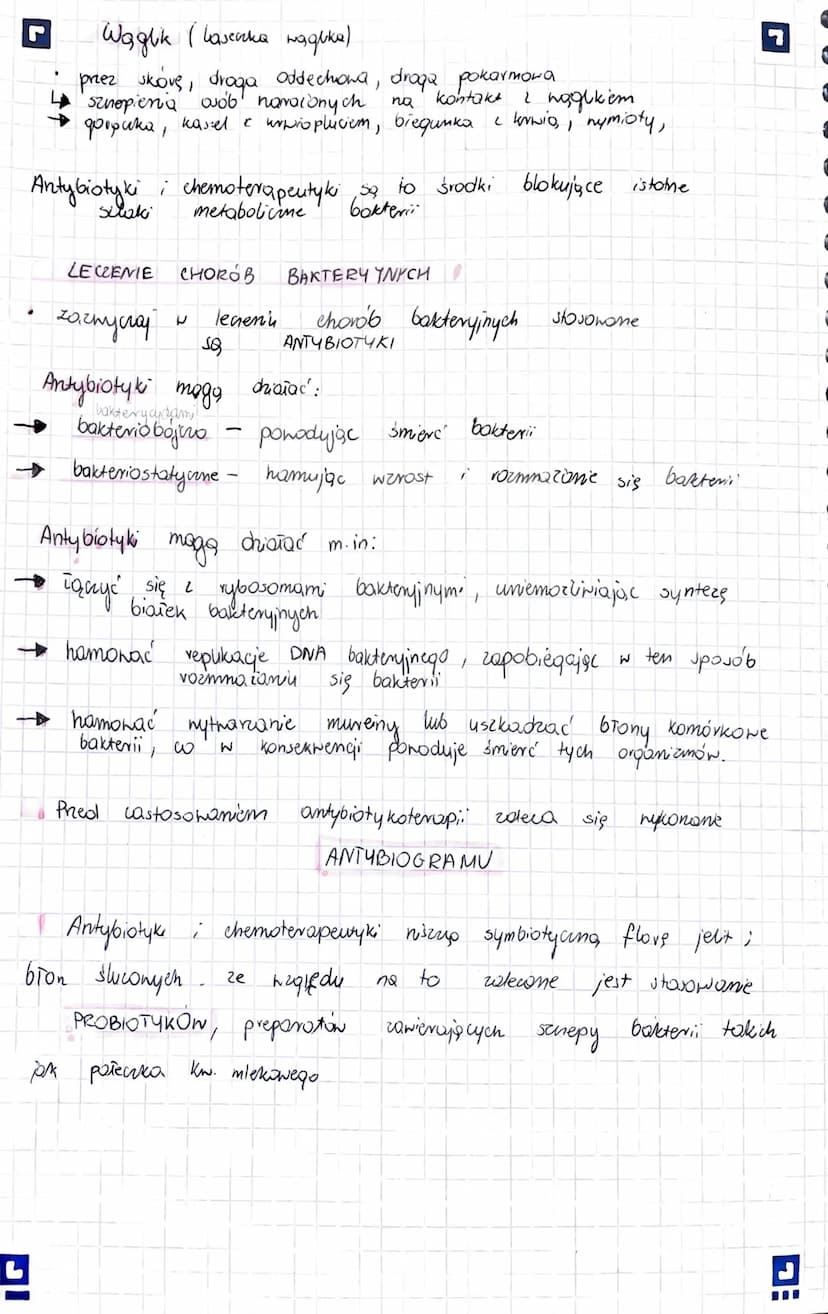 Wąglik (laseczka wąglika)
• przez skórę, droga oddechowa, droga pokarmowa
↳ szczepienia osób narażonych na kontakt z wąglikiem
→ gorączka, kaszel z krwiopluciem, biegunka z krwią, wymioty,
Antybiotyki i chemoterapeutyki są to środki blokujące istotne
szlaki metaboliczne bakterii
LECZENIE CHORÓB BAKTERYJNYCH
• zazwyczaj w leczeniu chorób bakteryjnych stosowane
są ANTYBIOTYKI
Antybiotyki mogą działać:
→ bakteriobójczo – powodując śmierć bakterii
→ bakteriostatyczne – hamując wzrost i rozmnażanie się bakterii
Antybiotyki mogą działać m.in:
→ łączyć się z rybosomami bakteryjnymi, uniemożliwiając syntezę
białek bakteryjnych
→ hamować replikację DNA bakteryjnego, zapobiegając w ten sposób
rozmnażaniu się bakterii
→ hamować wytwarzanie mureiny lub uszkadzać błony komórkowe
bakterii, co w konsekwencji powoduje śmierć tych organizmów.
Przed zastosowaniem antybiotykoterapii zaleca się wykonanie
ANTYBIOGRAMU
Antybiotyki i chemoterapeutyki niszczą symbiotyczną florę jelit i
błon śluzowych. ze względu na to zalecane jest stosowanie
PROBIOTYKÓW, preparatów zawierających szczepy bakterii takich
jak pałeczka kw. mlekowego